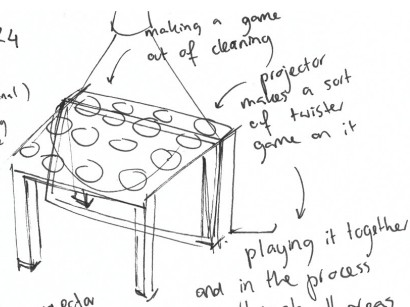 24
making a game
out of cleaning
projector
makes a sort
of twister
game on it
playing it together
and in the process
areas